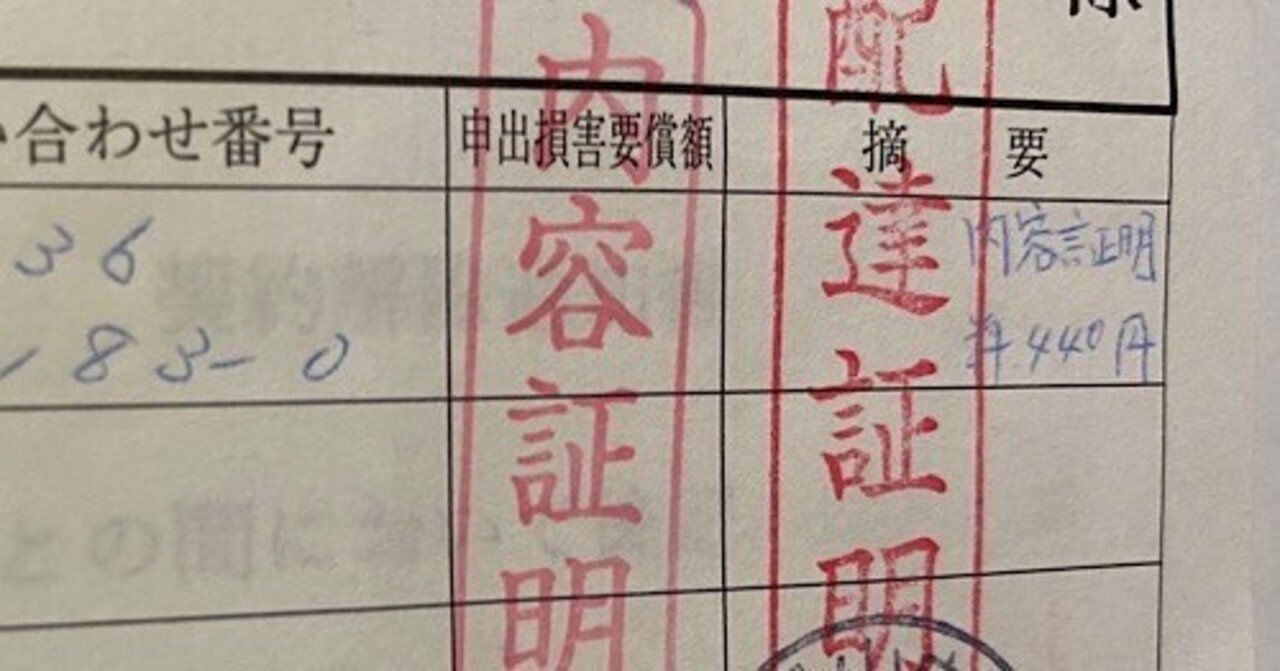 様
い合わせ番号 申出損害要償額 摘要
36
183-0
内容証明
料 440円
内容証明
配達証明